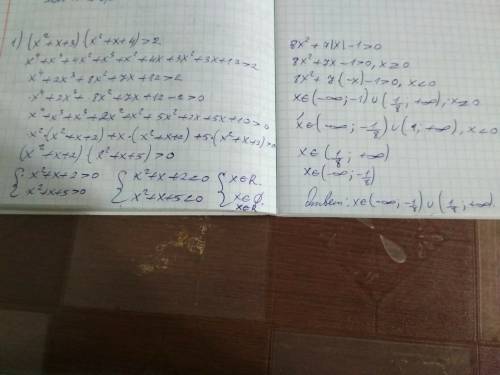 1) (x²+x+3)(x²+x+4)>2
x⁴+x³+4x²+x³+x²+4x+3x²+3x+12>2
x⁴+2x³+8x²+7x+12>2
x⁴+2x³+8x²+7x+12-2>0
x⁴+x³+x³+2x²+x²+5x²+2x+5x+10>0
x²·(x²+x+2)+x·(x²+x+2)+5·(x²+x+2)>0
(x²+x+2)(x²+x+5)>0
{x²+x+2>0 {x²+x+2<0 {x∈R
{x²+x+5>0 {x²+x+5<0 {x∈∅
x∈R
8x²+7|x|-1>0
8x²+7x-1>0, x≥0
8x²+7(-x)-1>0, x<0
x∈(-∞;-1)∪(1/8;+∞), x≥0
x∈(-∞;-1/8)∪(1;+∞), x<0
x∈(1/8;+∞)
x∈(-∞;-1/8)
Ответ: x∈(-∞;-1/8)∪(1/8;+∞).